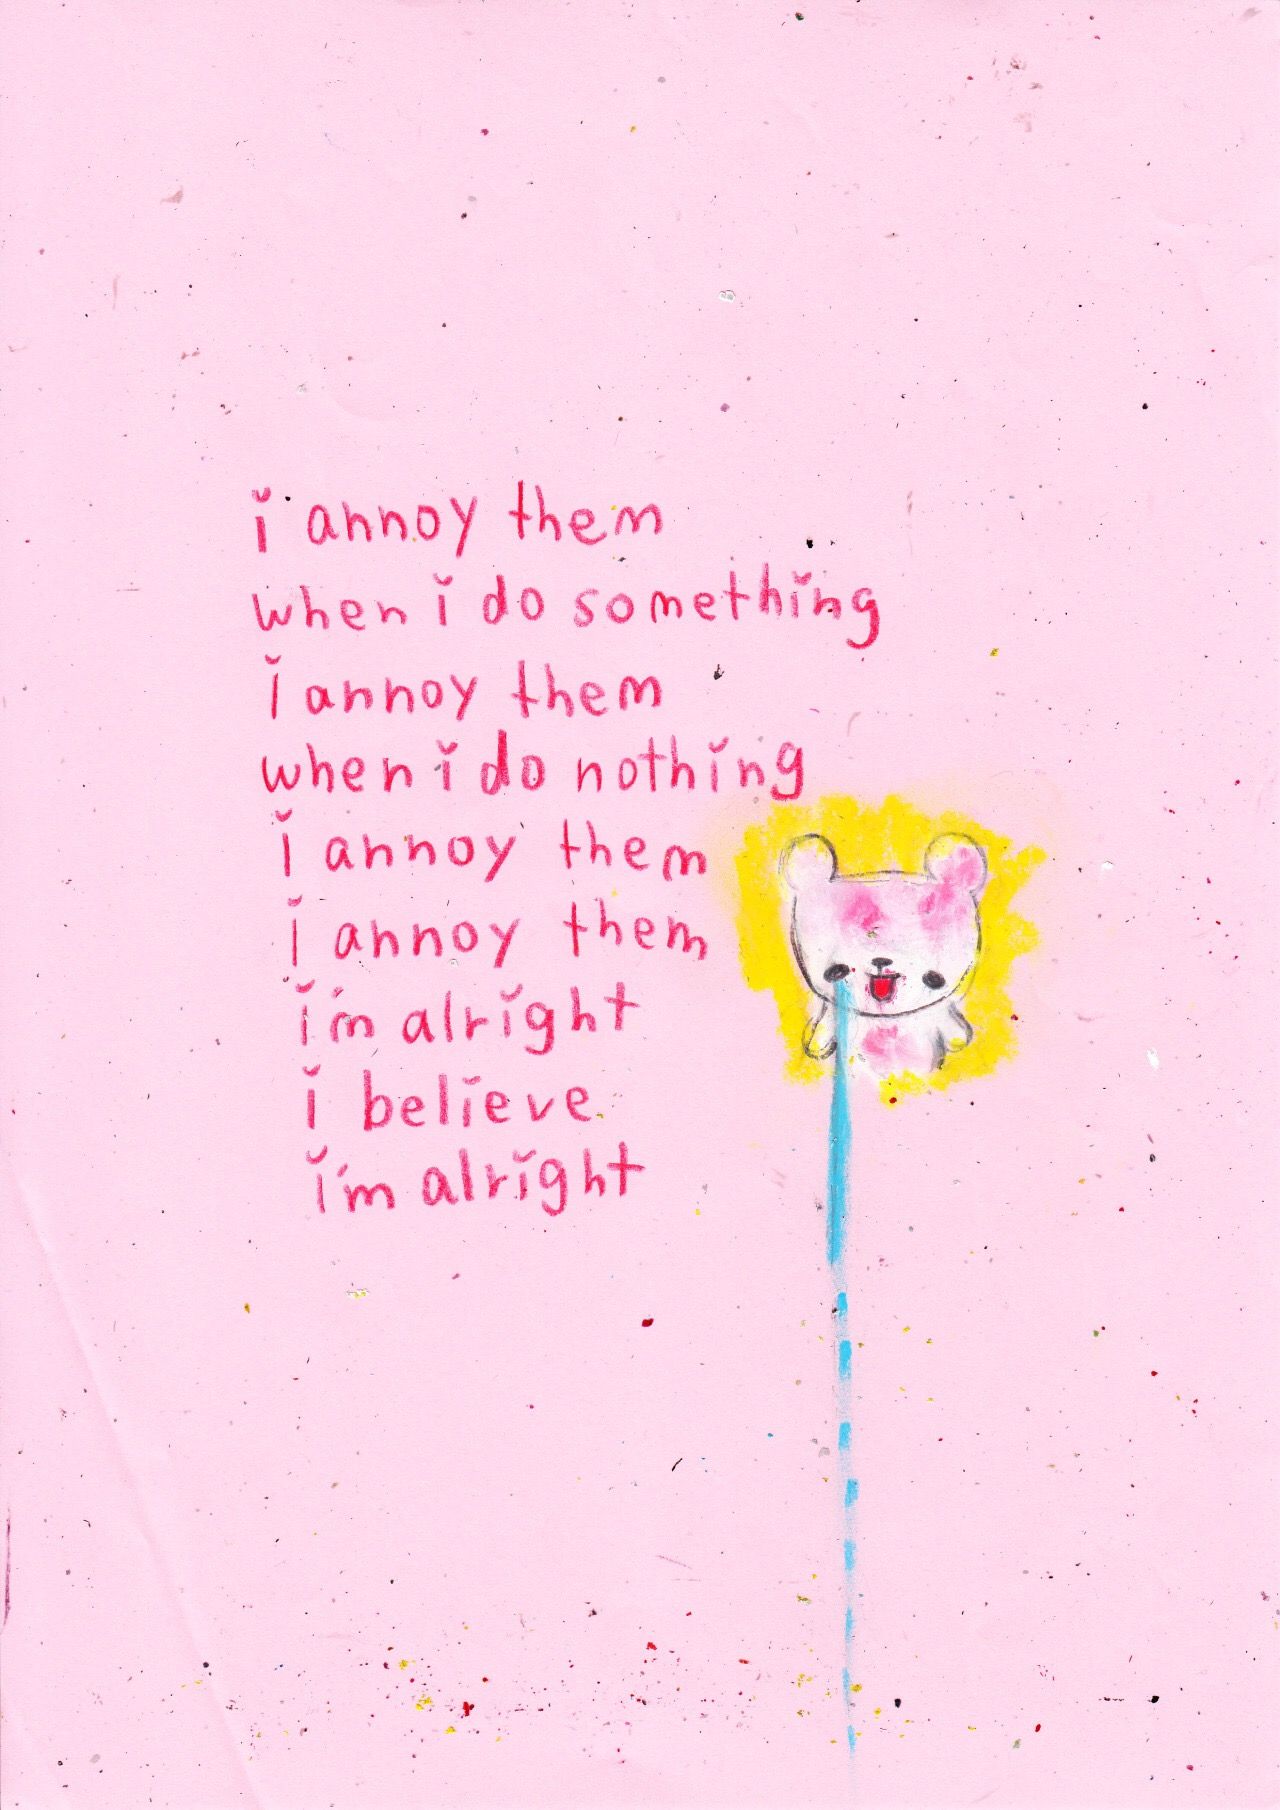 i annoy them
when i do something
i annoy them
when i do nothing
i annoy them
i annoy them
i'm alright
i believe
i'm alright